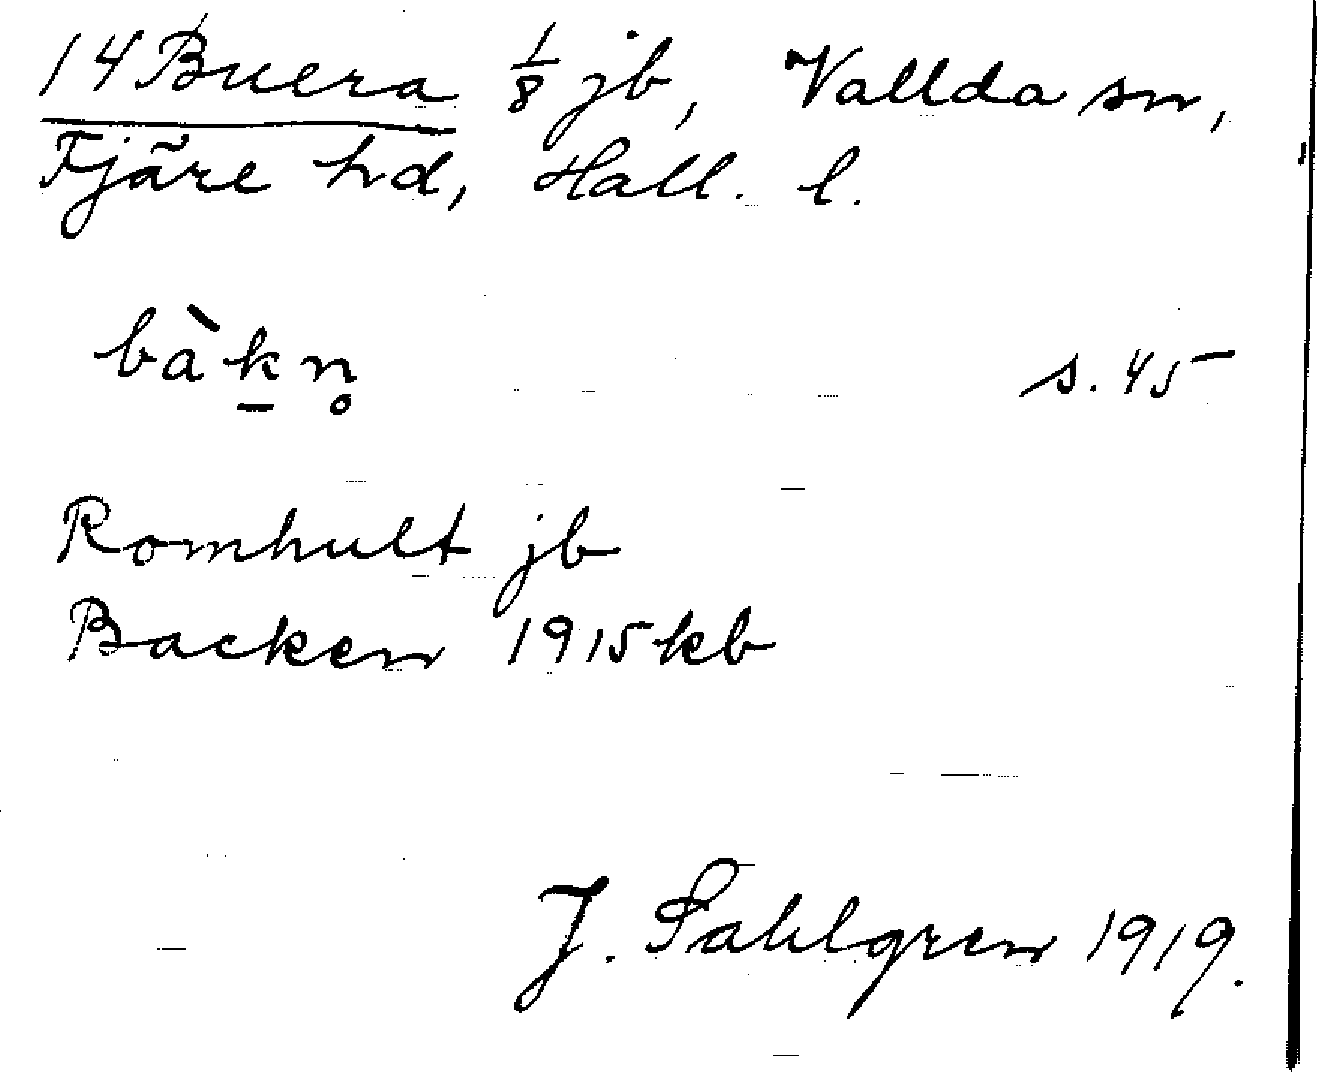 14 Buera 1/8 jb, Vallda sn,
Fjäre hd, Hall. l.
bàk̠n̥ s. 45
Romhult jb
Backen 1915 kb
J. Sahlgren 1919.